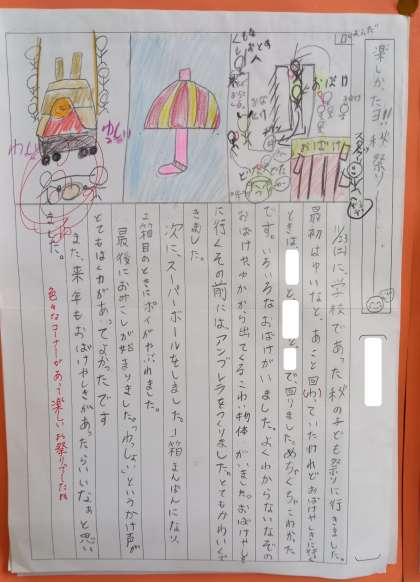 楽しかったヨ!!秋祭り
11/23(土)に、学校であった秋の子ども祭りに行きました。
最初はゆいなと、あこと回わっていたけれどおばけやしきに行く
ときは、と、と、で回りました。めちゃくちゃこわかった
です。いろいろなおばけがいました。よくわからないなぞの
おばけや、ゆかから出てくるこわい物体がいました。おばけやしき
に行くその前には、アンブレラをつくりました。とてもかわいくで
きました。
次に、スーパーボールをしました。1箱まんぱんになり、
2箱目のときにポイがやぶれました。
最後におみこしが始まりました。「わっしょい」というかけ声が
とてもはく力があってよかったです
また、来年もおばけやしきがあったらいいなぁと思い
ました。
色々なコーナーがあって楽しいお祭りでしたね
おばけ
わっしょい